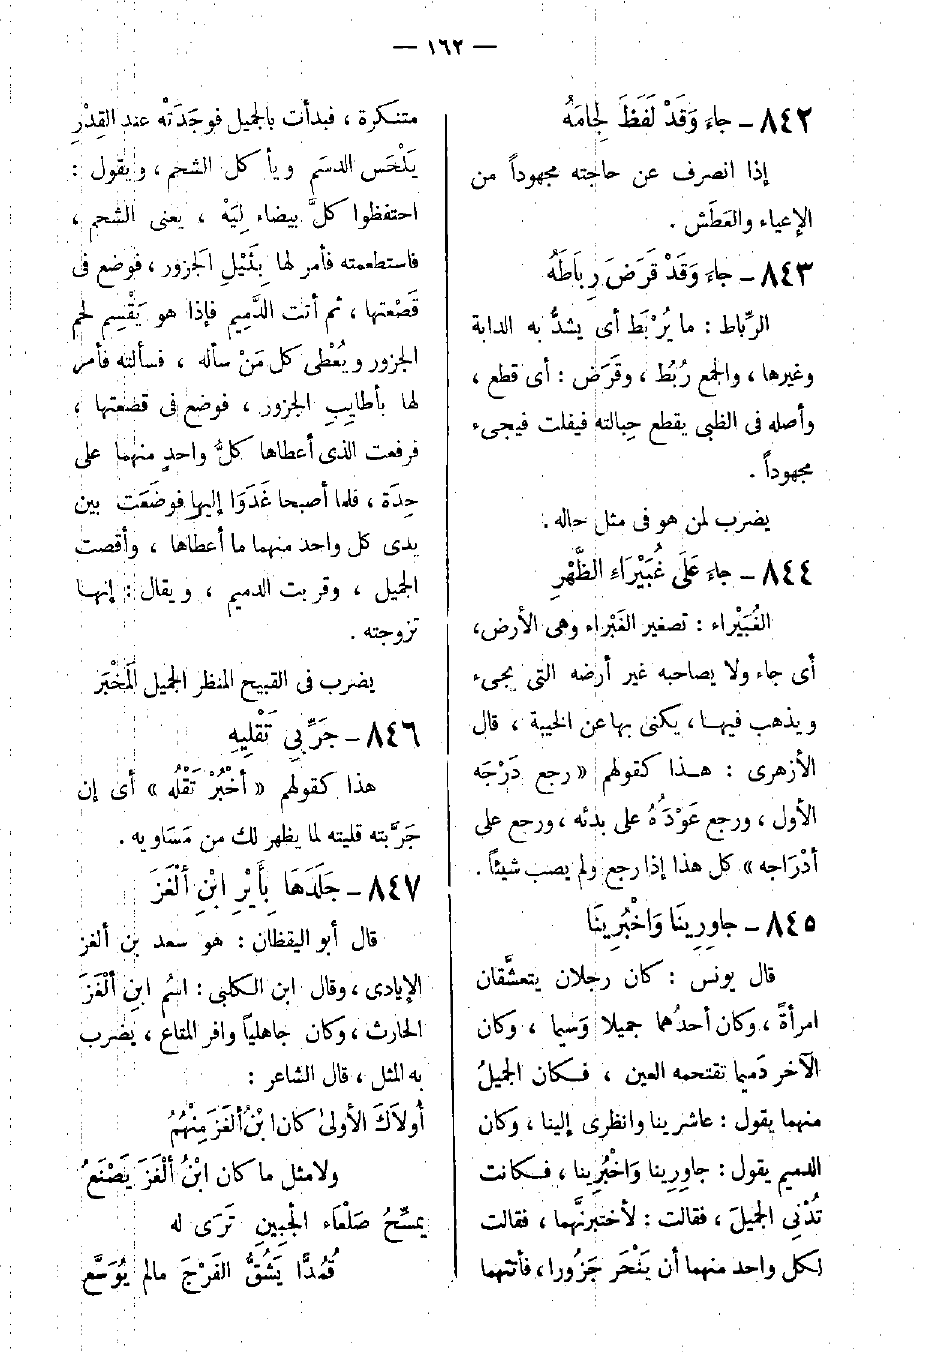 — ١٦٢ —
٨٤٢ – جاء وَقَدْ لَفَظَ لِجَامَهُ
إذا انصرف عن حاجته مجهوداً من
الإعياء والعَطَش .
٨٤٣ – جاء وَقَدْ قَرَضَ رِبَاطَهُ
الرِّباط : ما يُرْبَط أى يشدُّ به الدابة
وغيرها ، والجمع رُبُط ، وقَرَض : أى قطع ،
وأصله فى الظبى يقطع حِبالته فيفلت فيجىء
مجهوداً .
يضرب لمن هو فى مثل حاله .
٨٤٤ – جاء عَلَى غُبَيْرَاءِ الظَّهْرِ
الغُبَيْراء : تصغير الغَبْراء وهى الأرض،
أى جاء ولا يصاحبه غير أرضه التى يجىء
ويذهب فيهـا ، يكنى بها عن الخيبة ، قال
الأزهرى : هـذا كقولهم « رجع دَرْجَه
الأول ، ورجع عَوْدَهُ على بدئه ، ورجع على
أدْرَاجه » كل هذا إذا رجع ولم يصب شيئاً .
٨٤٥ – جاوِرِينَا وَاخْبُرِينَا
قال يونس : كان رجلان يتعشَّقان
امرأةً ، وكان أحدُهما جميلا وَسيما ، وكان
الآخر دَميما تقتحمه العين ، فـكان الجميلُ
منهما يقول : عاشرينا وانظرى إلينا ، وكان
الدميم يقول : جاوِرِينا وَاخْبُرِينا ، فـكانت
تُدْنِى الجميلَ ، فقالت : لأختبرنَّهما ، فقالت
لكل واحد منهما أن يَنْحَر جَزُورا ، فأتتهما
متنكرة ، فبدأت بالجميل فوجَدَتْه عند القِدْرِ
يَلْحَس الدسَم ويأكل الشحم ، ويقول :
احتفظوا كلَّ بيضاء لِيَهْ ، يعنى الشحم ،
فاستطعمته فأمر لها بِثَيْلِ الجزور ، فوضع فى
قَصْعتها ، ثم أتت الدَّميم فإذا هو يَقْسِم لحم
الجزور ويُعْطِى كل مَنْ سأله ، فسألته فأمر
لها بأطايِبِ الجزور ، فوضع فى قصعتها ،
فرفعت الذى أعطاها كلُّ واحدٍ منهما على
حِدَة ، فلما أصبحا غَدَوَا إليها فوضَعَت بين
يدى كل واحد منهما ما أعطاها ، وأقصت
الجميل ، وقربت الدميم ، ويقال : إنهـا
تزوجته .
يضرب فى القبيح المنظر الجميل المَخْبَر
٨٤٦ – جَرِّبِى تَقْلِيهِ
هذا كقولهم « اُخْبُرْ تَقْلُه » أى إن
جَرَّبته قليته لما يظهر لك من مَسَاويه .
٨٤٧ – جَلَدَهَا بِأَيْرِ ابْنِ أَلْغَزَ
قال أبو اليقظان : هو سعد بن ألغز
الإيادى ، وقال ابن الكلبى : اسْم ابنِ ألْغَزَ
الحارث ، وكان جاهلياً وافر المتاع ، يضرب
به المثل ، قال الشاعر :
أولاَكَ الأولىٰ كان ابنُ ألغَزَ مِنْهُمُ
ولا مثل ما كان ابْنُ ألْغَزَ يَصْنَعُ
يمسِّحُ صَلْعَاء الجَبِينِ تَرَى له
قُمُدًّا يَشُقُّ الفَرْجَ مالم يُوَسَّع